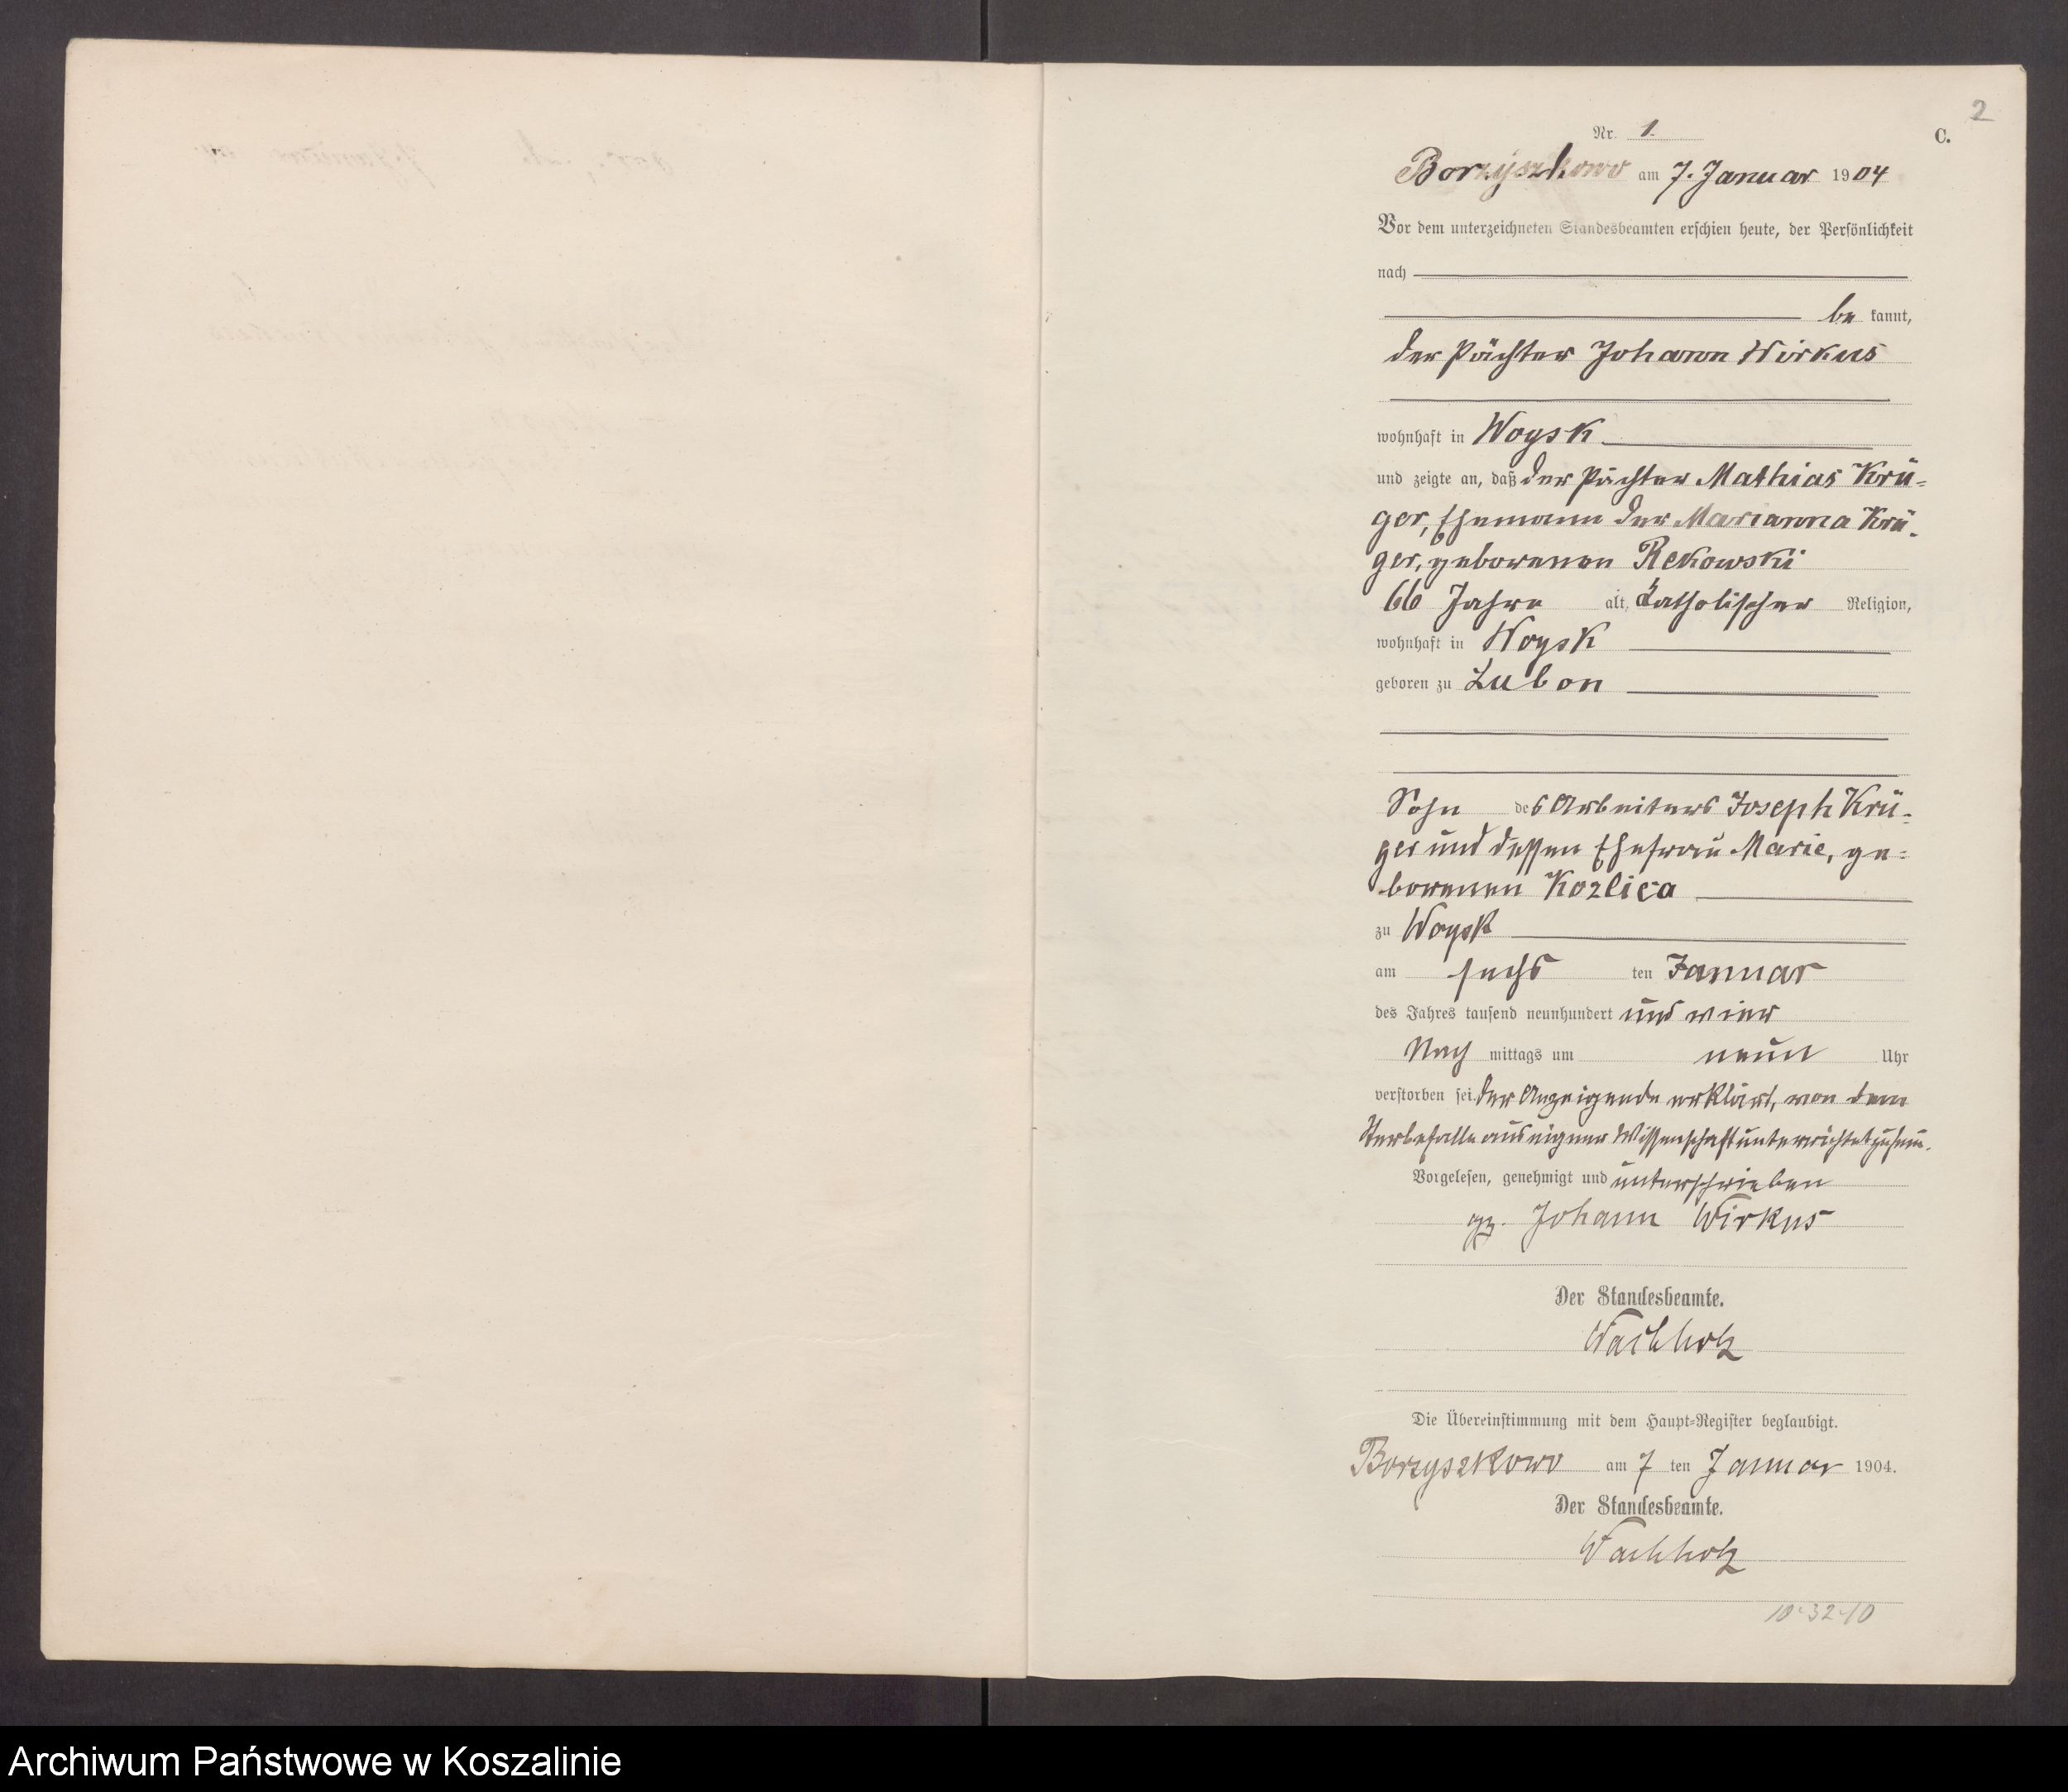 2
C.
Nr. 1.
Borzyszkowo am 7. Januar 1904
Vor dem unterzeichneten Standesbeamten erschien heute, der Persönlichkeit
nach
be kannt,
der Pächter Johann Wirkus
wohnhaft in Woysk
und zeigte an, daß der Pächter Mathias Krü-
ger, Ehemann der Marianna Krü-
ger, geborenen Rekowski
66 Jahre alt, katholischer Religion,
wohnhaft in Woysk
geboren zu Lubon
Sohn des Arbeiters Joseph Krü-
ger und dessen Ehefrau Marie, ge-
borenen Kozlica
zu Woysk
am sechs ten Januar
des Jahres tausend neunhundert und vier
Nach mittags um neun Uhr
verstorben sei. Der Anzeigende erklärt, von dem
Sterbefalle aus eigener Wissenschaft unterrichtet zu sein.
Vorgelesen, genehmigt und unterschrieben
gz. Johann Wirkus
Der Standesbeamte.
Wachholz
Die Übereinstimmung mit dem Haupt-Register beglaubigt.
Borzyszkowo am 7 ten Januar 1904.
Der Standesbeamte.
Wachholz
Archiwum Państwowe w Koszalinie